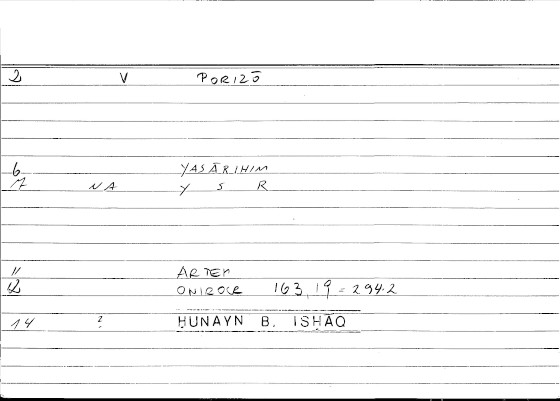 2 V PORIZŌ
6 YASĀRIHIM
7 NA Y S R
11 ARTEM
12 ONIROCR 163,19 = 294.2
14 ? ḤUNAYN B. ISḤĀQ